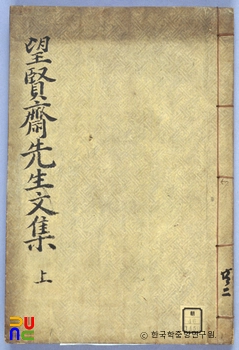 望賢齋先生文集
上
© 한국학중앙연구원